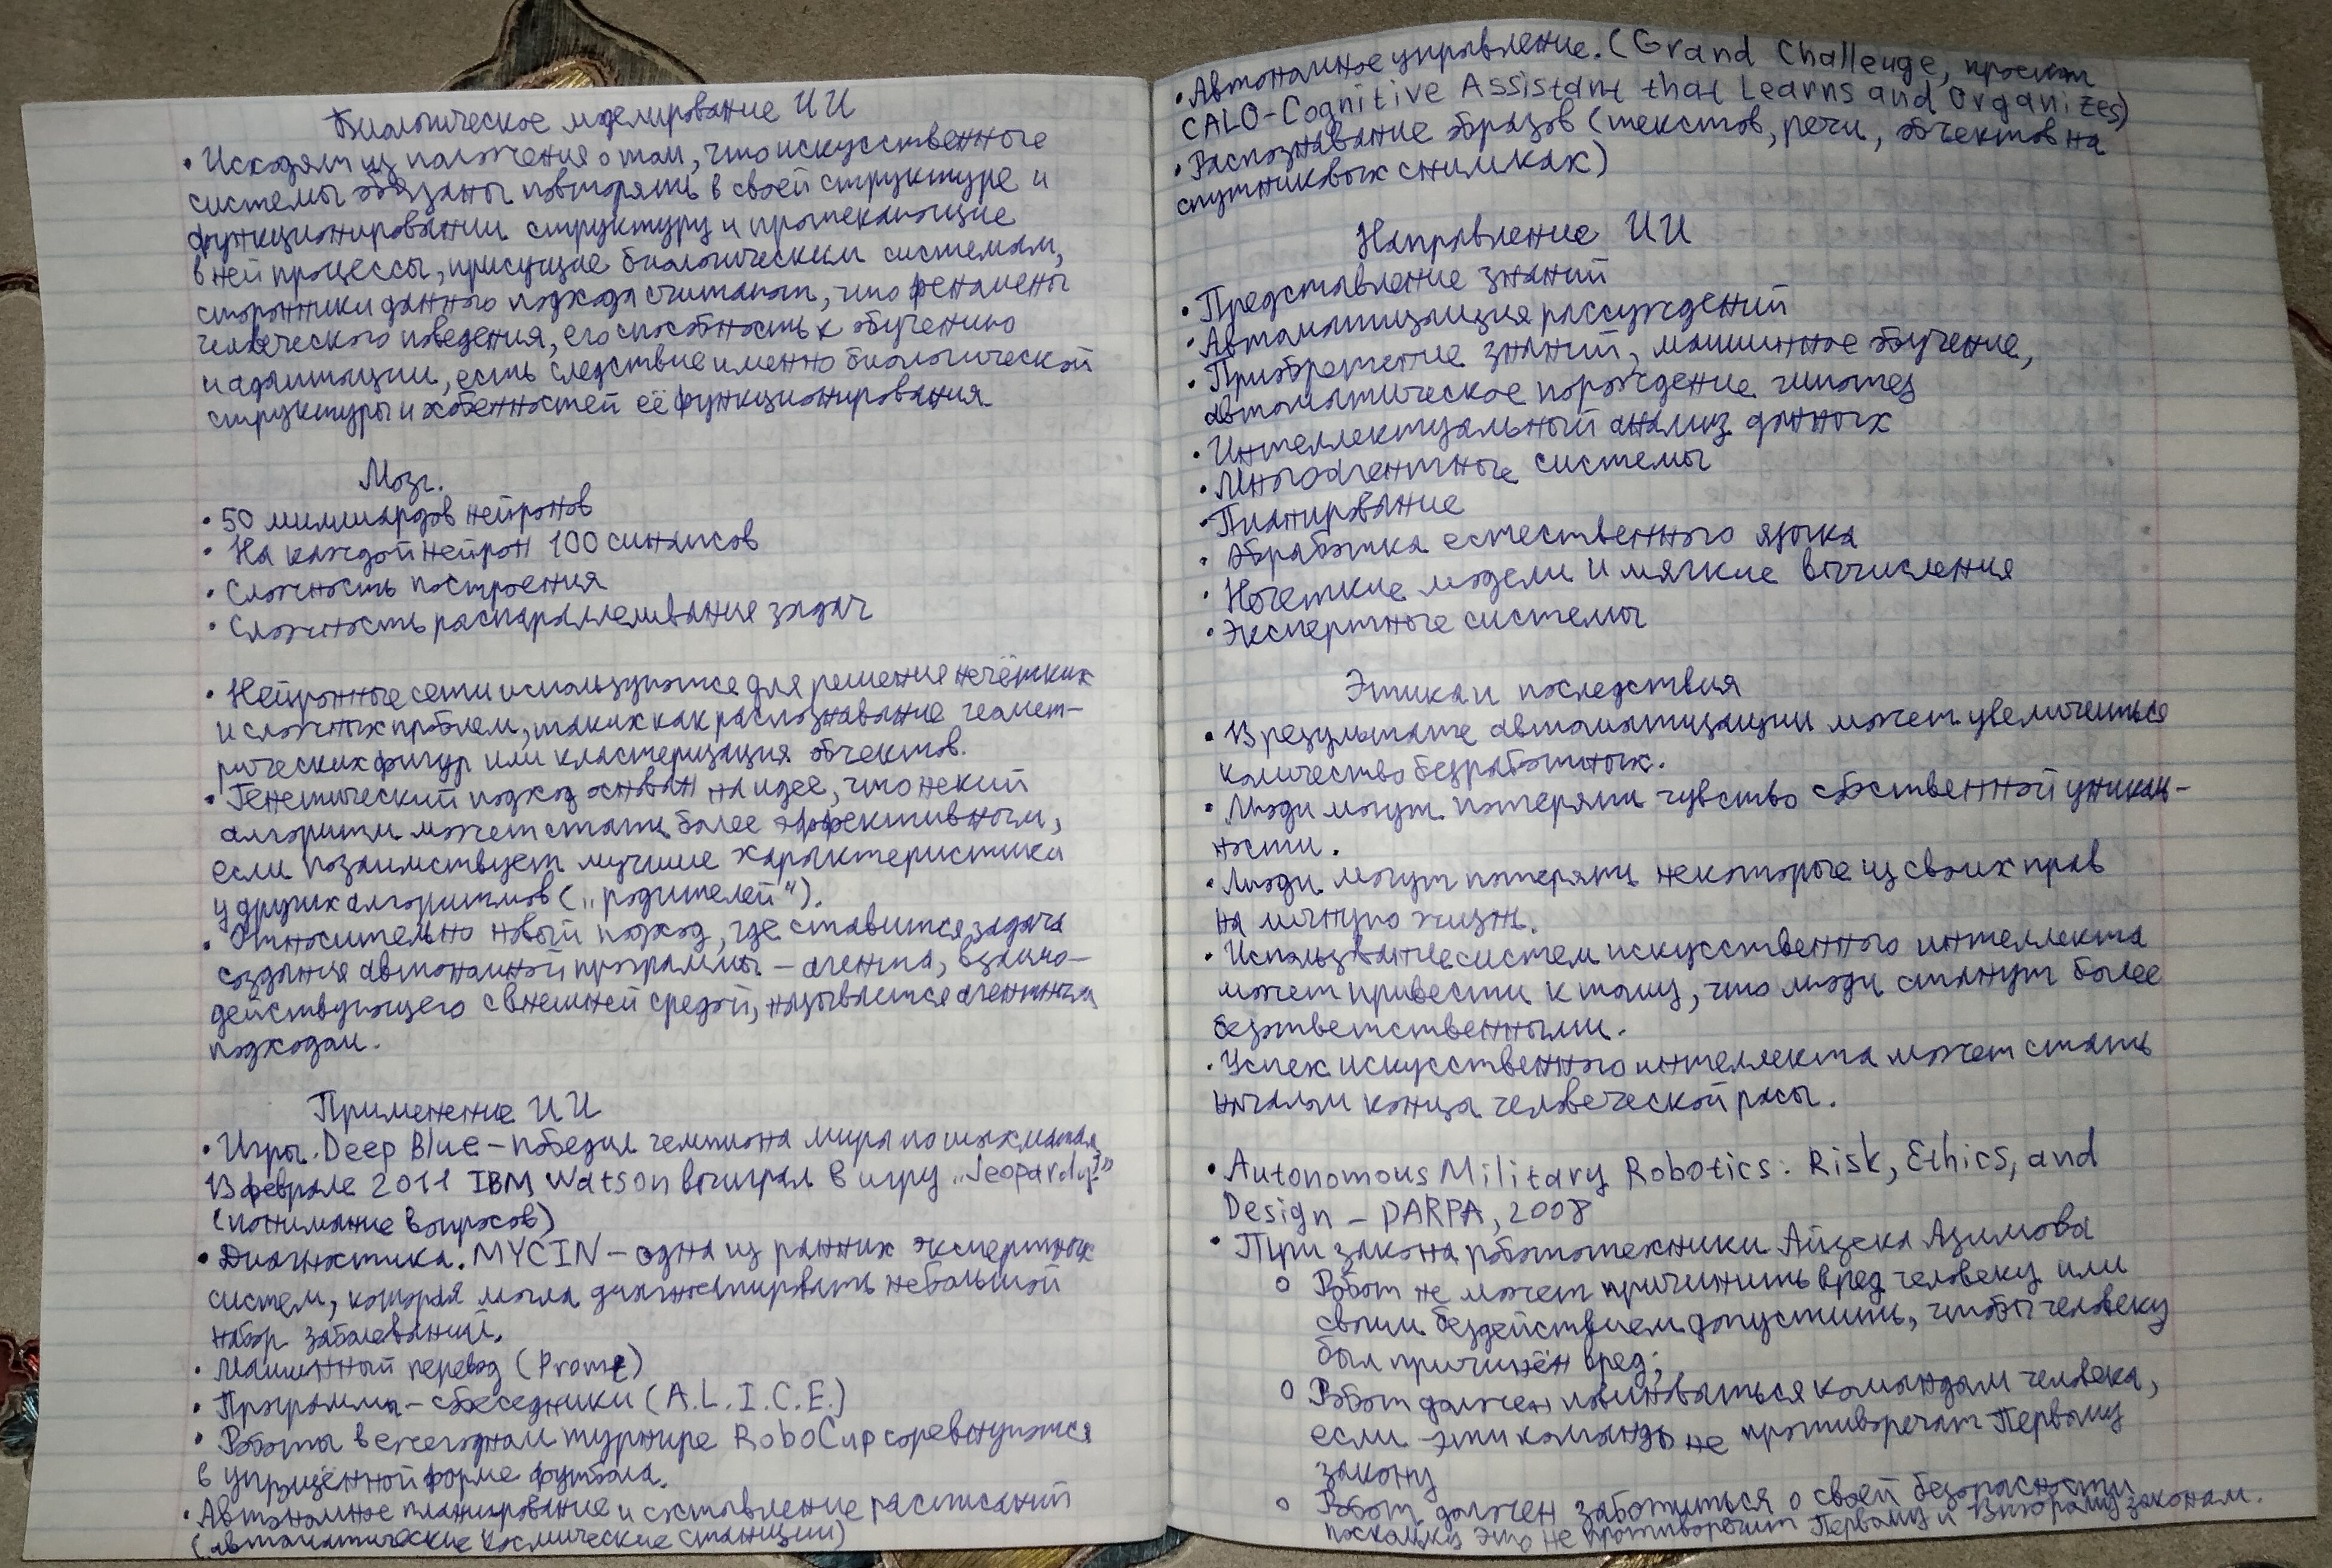 Биологическое моделирование ИИ
• Исходят из положения о том, что искусственные
системы обязаны повторять в своей структуре и
функционировании структуру и протекающие
в ней процессы, присущие биологическим системам,
сторонники данного подхода считают, что феномены
человеческого поведения, его способность к обучению
и адаптации, есть следствие именно биологической
структуры и особенностей её функционирования.
Мозг.
• 50 миллиардов нейронов
• На каждой нейрон 100 синапсов
• Сложность построения
• Сложность распараллеливания задач
• Нейронные сети используются для решения нечётких
и сложных проблем, таких как распознавание геомет-
рических фигур или кластеризация объектов.
• Генетический подход основан на идее, что некий
алгоритм может стать более эффективным,
если позаимствует лучшие характеристики
у других алгоритмов („родителей“).
• Относительно новый подход, где ставится задача
создания автономной программы – агента, взаимо-
действующего с внешней средой, называется агентным
подходом.
Применение ИИ
• Игры. Deep Blue – победил чемпиона мира по шахматам
В феврале 2011 IBM Watson выиграл в игру „Jeopardy!"
(понимание вопросов)
• Диагностика. MYCIN – одна из ранних экспертных
систем, которая могла диагностировать небольшой
набор заболеваний.
• Машинный перевод (Promt)
• Программы – собеседники (A.L.I.C.E.)
• Роботы в ежегодном турнире RoboCup соревнуются
в упрощённой форме футбола.
• Автономное планирование и составление расписаний
(автоматические космические станции)
• Автономное управление. (Grand Challenge, проект
CALO-Cognitive Assistant that Learns and Organizes)
• Распознавание образов (текстов, речи, объектов на
спутниковых снимках)
Направление ИИ
• Представление знаний
• Автоматизация рассуждений
• Приобретение знаний, машинное обучение,
автоматическое порождение гипотез
• Интеллектуальный анализ данных
• Многоагентные системы
• Планирование
• Обработка естественного языка
• Нечеткие модели и мягкие вычисления
• Экспертные системы
Этика и последствия
• В результате автоматизации может увеличиться
количество безработных.
• Люди могут потерять чувство собственной уникаль-
ности.
• Люди могут потерять некоторые из своих прав
на личную жизнь.
• Использование систем искусственного интеллекта
может привести к тому, что люди станут более
безответственными.
• Успех искусственного интеллекта может стать
началом конца человеческой расы.
• Autonomous Military Robotics: Risk, Ethics, and
Design – DARPA, 2008
• Три закона робототехники Айзека Азимова
o Робот не может причинить вред человеку или
своим бездействием допустить, чтобы человеку
был причинён вред;
o Робот должен повиноваться командам человека,
если эти команды не противоречат Первому
закону
o Робот должен заботиться о своей безопасности
поскольку это не противоречит Первому и Второму законам.